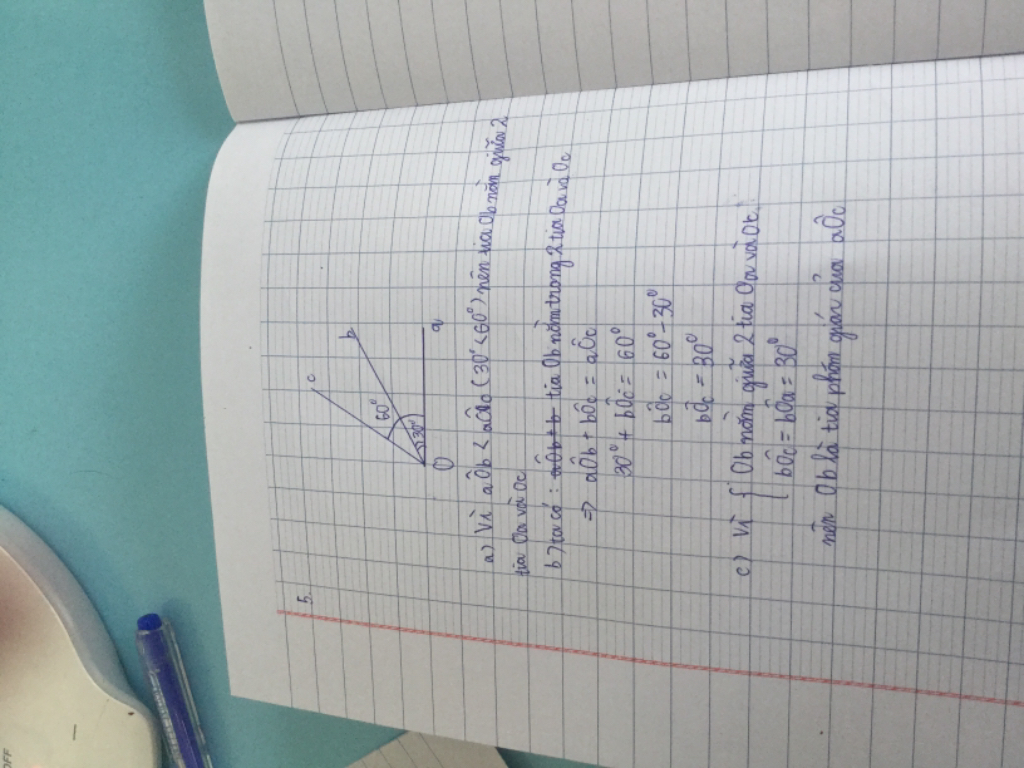 5.
c
b
60°
30°
O
a
a) Vì aÔb < aÔc (30° < 60°) nên tia Ob nằm giữa 2
tia Oa và Oc
b) Ta có: aÔb + b tia Ob nằm trong 2 tia Oa và Oc
=> aÔb + bÔc = aÔc
30° + bÔc = 60°
bÔc = 60° - 30°
bÔc = 30°
c) Vì { Ob nằm giữa 2 tia Oa và Oc.
bÔc = bÔa = 30°
nên Ob là tia phân giác của aÔc
OFF